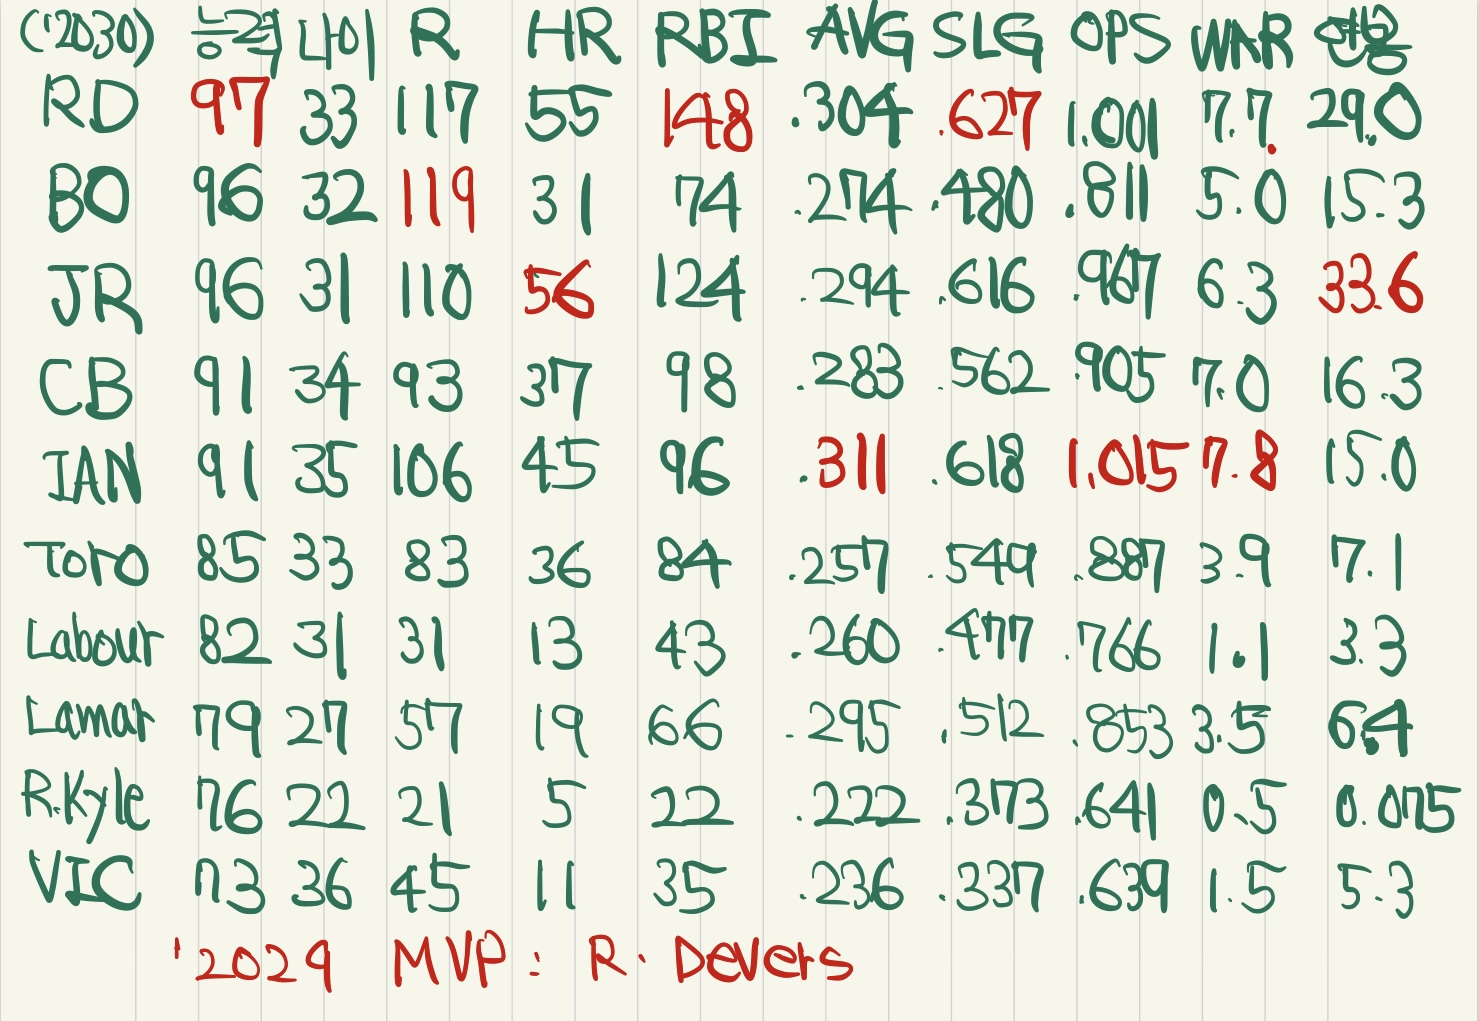 ('2030) 능력 나이 R HR RBI AVG SLG OPS WAR 연봉
RD 97 33 117 55 148 .304 .627 1.001 7.7. 29.0
BO 96 32 119 31 74 .274 .480 .811 5.0 15.3
JR 96 31 110 56 124 .294 .616 .967 6.3 33.6
CB 91 34 93 37 98 .283 .562 .905 7.0 16.3
IAN 91 35 106 45 96 .311 .618 1.015 7.8 15.0
Toro 85 33 83 36 84 .257 .549 .887 3.9 7.1
Labour 82 31 31 13 43 .260 .477 .766 1.1 3.3
Lamar 79 27 57 19 66 .295 .512 .853 3.5 6.4
R.Kyle 76 22 21 5 22 .222 .373 .641 0.5 0.075
VIC 73 36 45 11 35 .236 .337 .639 1.5 5.3
'2029 MVP : R. Devers